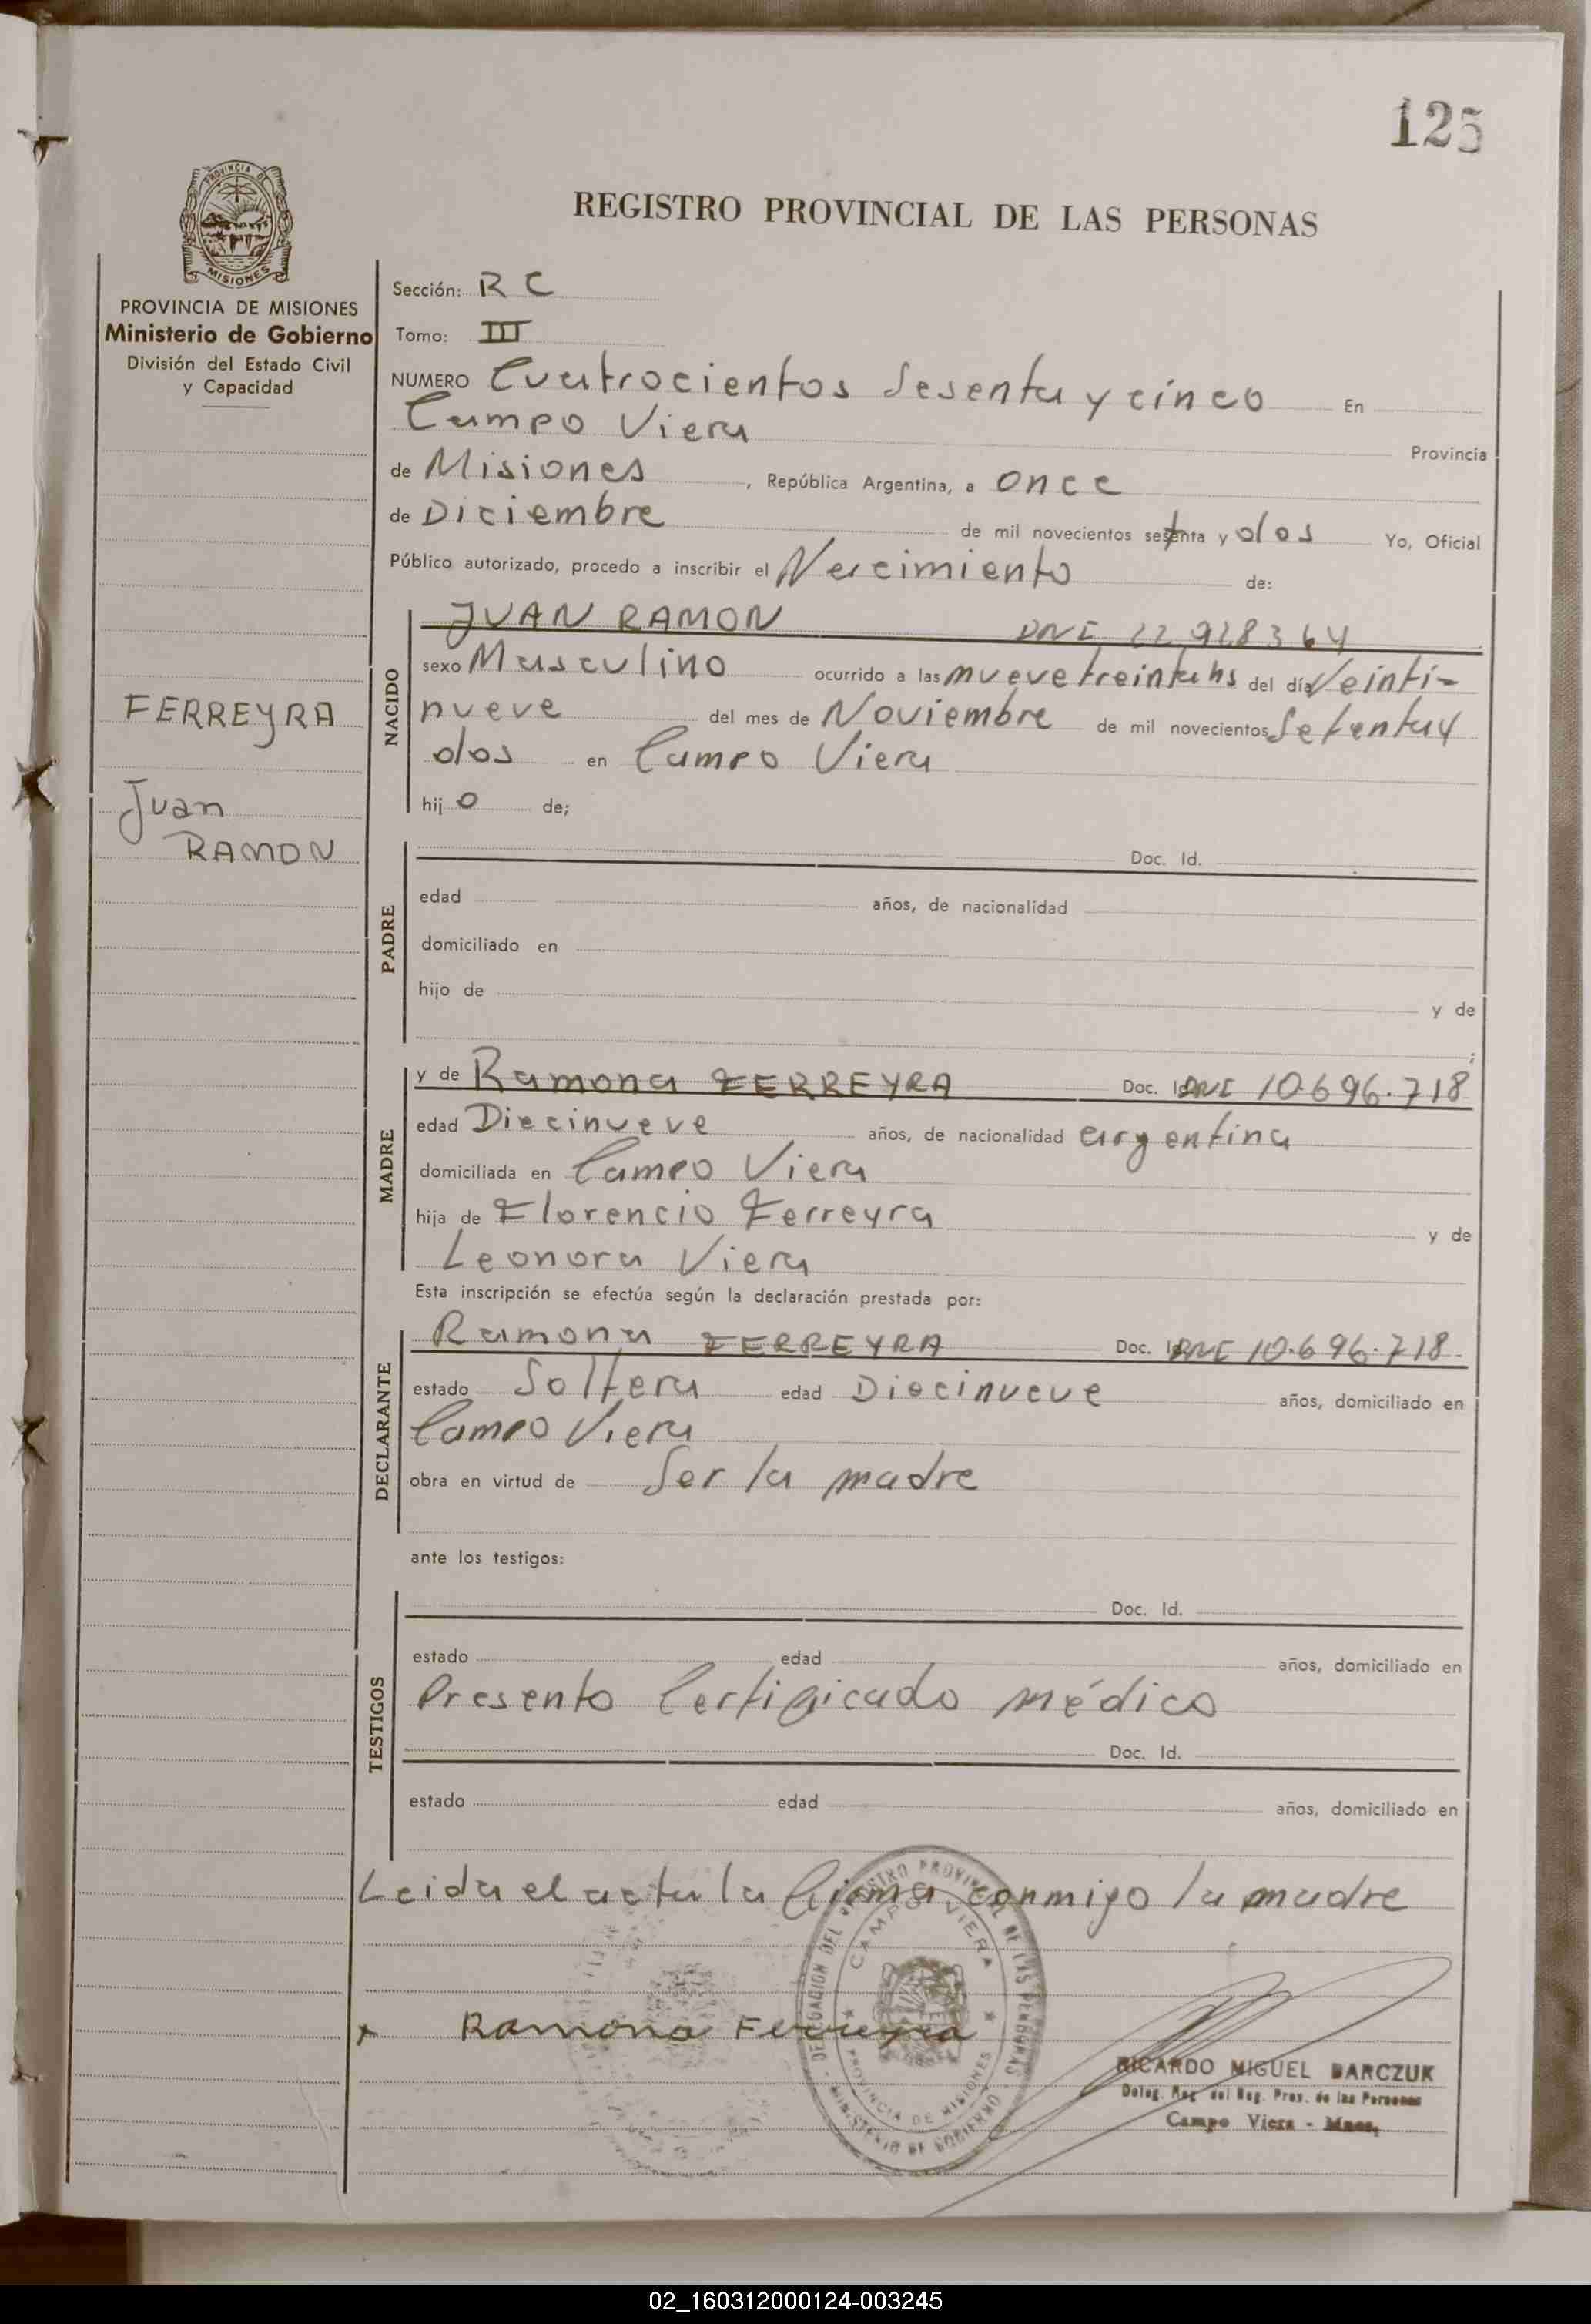 125
PROVINCIA DE
MISIONES
REGISTRO PROVINCIAL DE LAS PERSONAS
PROVINCIA DE MISIONES
Ministerio de Gobierno
División del Estado Civil
y Capacidad
FERREYRA
Juan
RAMON
Sección: R C
Tomo: III
NUMERO Cuatrocientos Sesenta y cinco En
Campo Viera Provincia
de Misiones, República Argentina, a once
de Diciembre de mil novecientos setenta y dos Yo, Oficial
Público autorizado, procedo a inscribir el Nacimiento de:
NACIDO
JUAN RAMON DNI 22.928364
sexo Masculino ocurrido a las nueve treinta hs del día Veinti-
nueve del mes de Noviembre de mil novecientos Setenta y
dos en Campo Viera
hij o de;
PADRE
Doc. Id.
edad años, de nacionalidad
domiciliado en
hijo de y de
;
MADRE
y de Ramona FERREYRA Doc. Id. DNI 10.696.718
edad Diecinueve años, de nacionalidad argentina
domiciliada en Campo Viera
hija de Florencio Ferreyra y de
Leonora Viera
Esta inscripción se efectúa según la declaración prestada por:
DECLARANTE
Ramona FERREYRA Doc. Id. DNI 10.696.718
estado Soltera edad Diecinueve años, domiciliado en
Campo Viera
obra en virtud de Ser la madre
ante los testigos:
TESTIGOS
Doc. Id.
estado edad años, domiciliado en
Presento Certificado médico
Doc. Id.
estado edad años, domiciliado en
Leida el acta la firma conmigo la madre
DELEGACION DEL REGISTRO PROVINCIAL DE LAS PERSONAS
CAMPO VIERA
PROVINCIA DE MISIONES
MINISTERIO DE GOBIERNO
x Ramona Ferreyra
RICARDO MIGUEL BARCZUK
Deleg. Reg. del Reg. Prov. de las Personas
Campo Viera - Mnes.
02_160312000124-003245